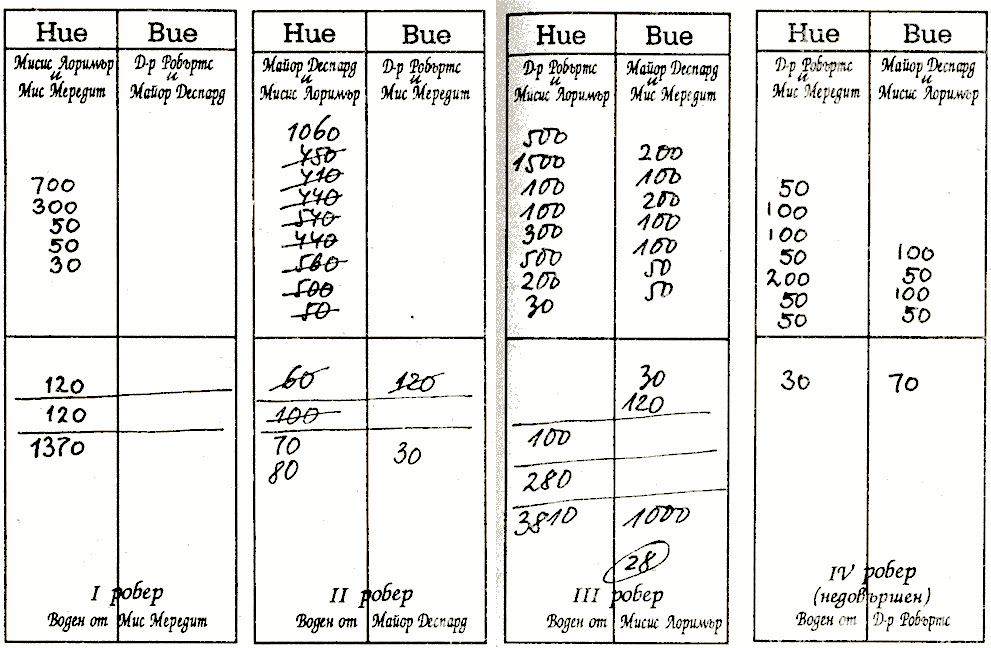 Ние Вие
Мисис Лоримър и Мис Мередит
Д-р Робъртс и Майор Деспард
700
300
50
50
30
120
120
1370
I робер
Воден от Мис Мередит
Ние Вие
Майор Деспард и Мисис Лоримър
Д-р Робъртс и Мис Мередит
1060
450
410
440
540
440
560
500
50
60 120
100
70 30
80
II робер
Воден от Майор Деспард
Ние Вие
Д-р Робъртс и Мисис Лоримър
Майор Деспард и Мис Мередит
500
1500 200
100 100
100 200
300 100
500 100
200 50
30 50
30
120
100
280
3810 1000
28
III робер
Воден от Мисис Лоримър
Ние Вие
Д-р Робъртс и Мис Мередит
Майор Деспард и Мисис Лоримър
50
100
100
50 100
200 50
50 100
50 50
30 70
IV робер
(недовършен)
Воден от Д-р Робъртс